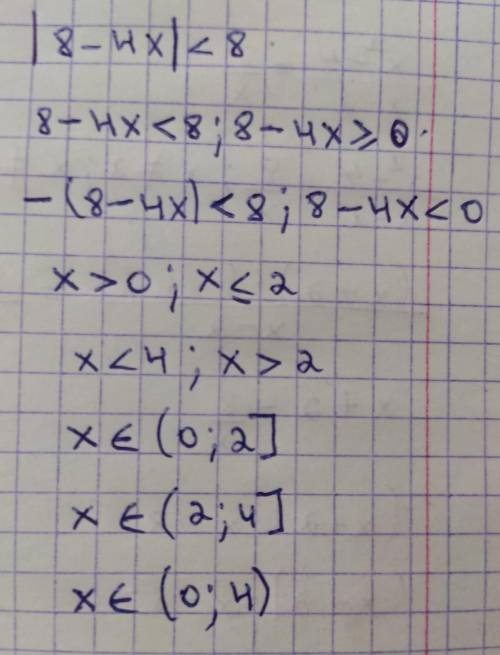 |8-4x|<8
8-4x<8; 8-4x≥0.
-(8-4x)<8; 8-4x<0
x>0; x≤2
x<4; x>2
x∈(0;2]
x∈(2;4]
x∈(0;4)